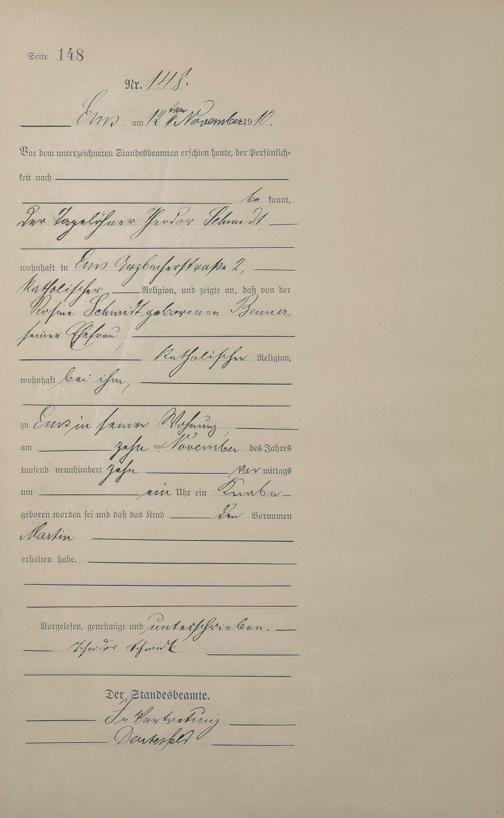 Seite 148
Nr. 148.
Ems am 12ten November 1910.
Vor dem unterzeichneten Standesbeamten erschien heute, der Persönlich-
keit nach
be kannt,
der Tagelöhner Theodor Schmidt
wohnhaft in Ems Arzbacherstraße 2,
katholischer Religion, und zeigte an, daß von der
Rosine Schmidt geborenen
seiner Ehefrau,
katholischer Religion,
wohnhaft bei ihm,
zu Ems in seiner Wohnung,
am zehnten November des Jahres
tausend neunhundert zehn vor mittags
um ein Uhr ein Knabe
geboren worden sei und daß das Kind den Vornamen
Martin
erhalten habe.
Vorgelesen, genehmigt und unterschrieben.
Theodor Schmidt
Der Standesbeamte.
In Vertretung